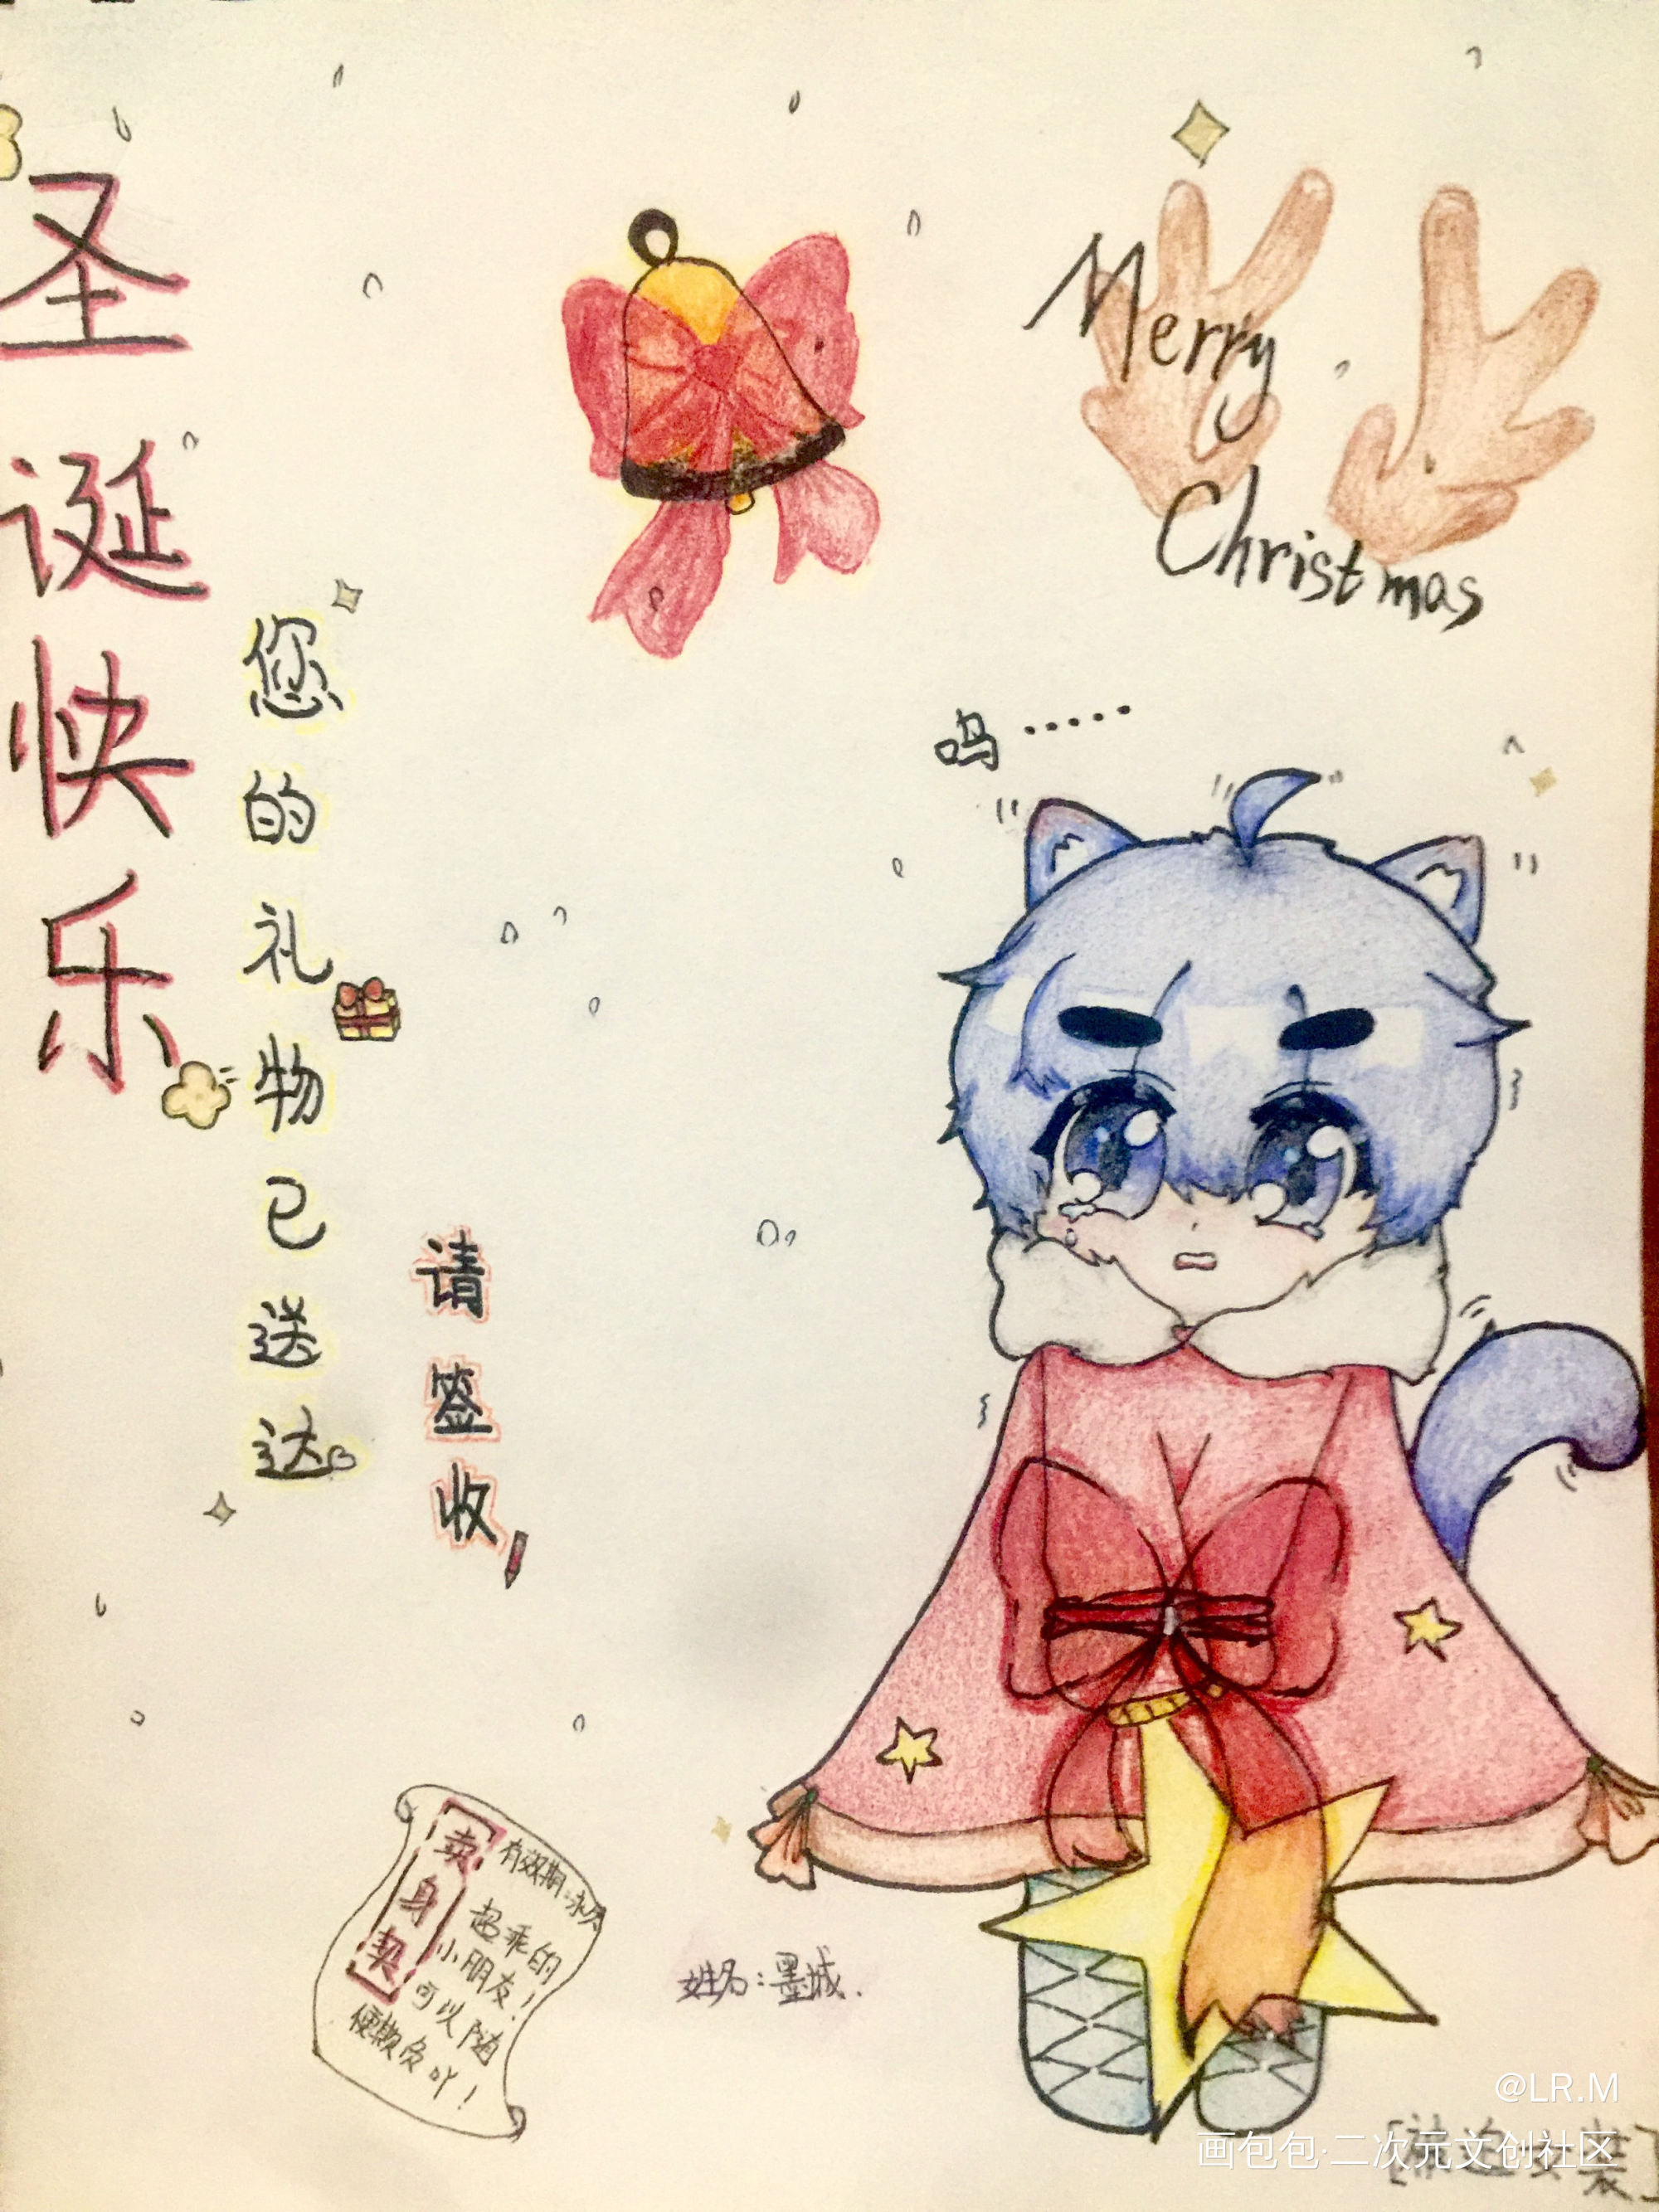 圣诞快乐
您的礼物已送达
请签收
Merry
Christmas
呜······
卖身契
有效期:永久
超乖的
小朋友!
可以随
便欺负吖!
姓名:墨城.
@LR.M
画包包·二次元文创社区
[被迫女装]